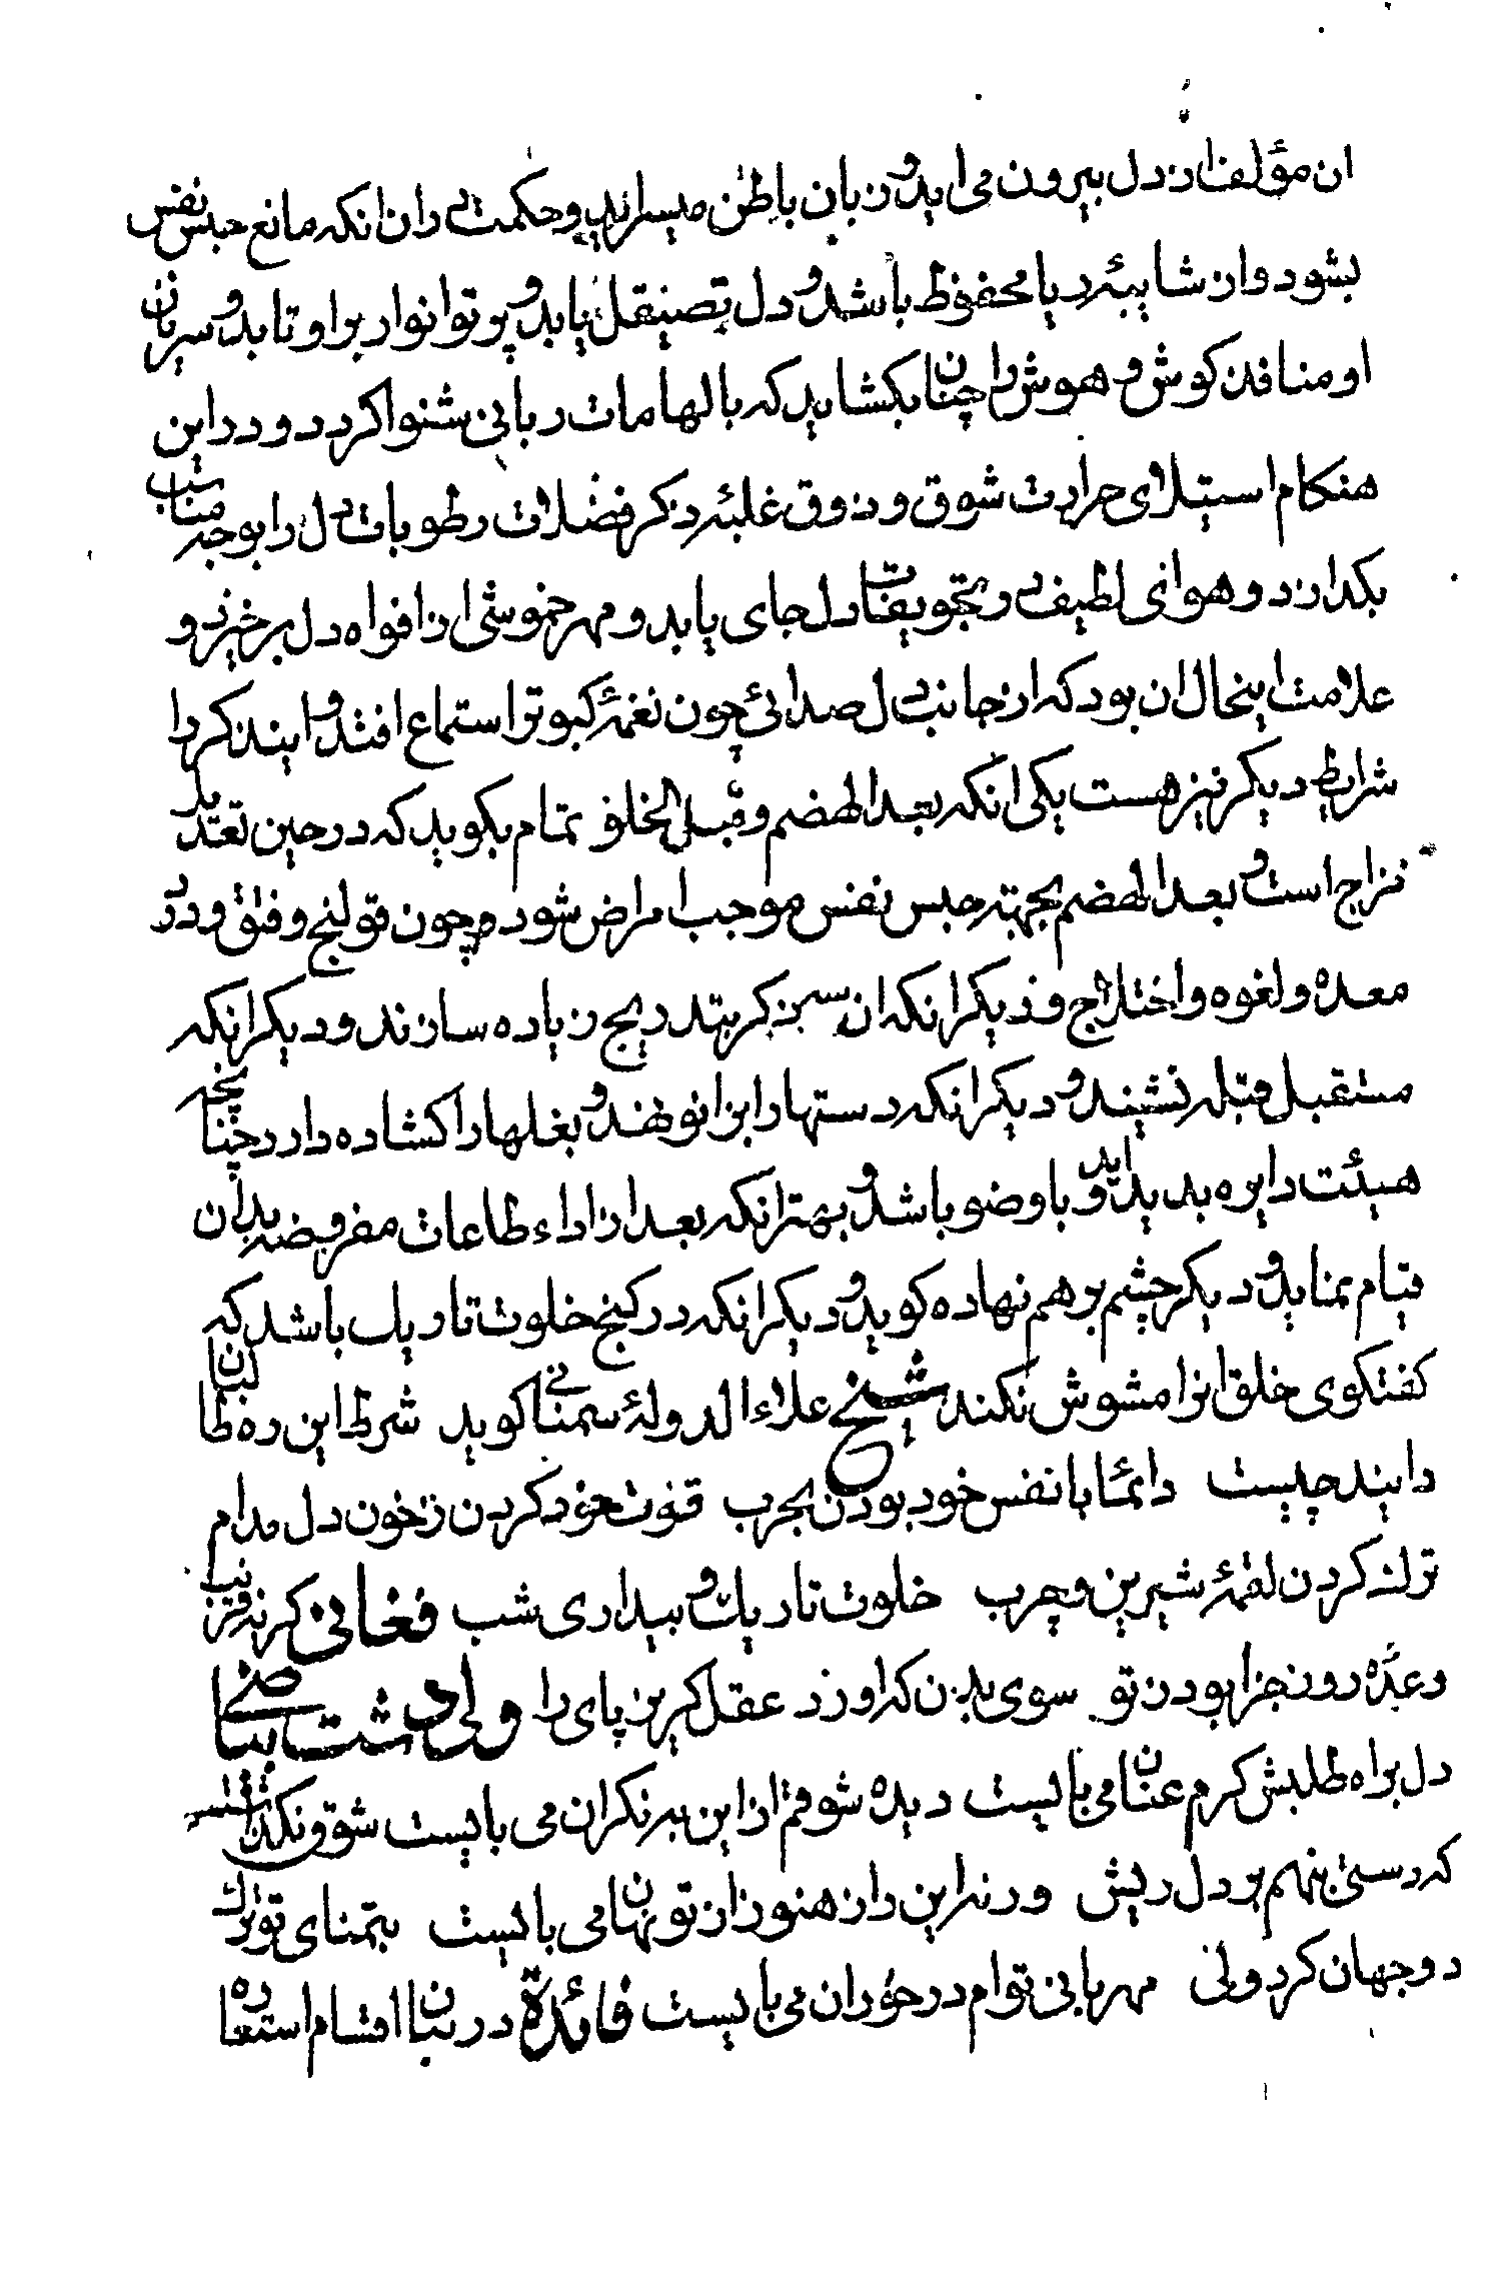 ان مؤلف از دل بیرون می اید و زبان باطن میسراید و حکمت دران انکه مانع حبس نفس
بشود و از شایبهٔ ریا محفوظ باشد و دل تصیقل یابد و پرتو انوار بر او تابد و سریان
او منافذ کوش و هوش را چنان بکشاید که بالهامات ربانی شنوا کردد و در این
هنکام استیلای حرارت شوق و ذوق غلبهٔ ذکر فضلات رطوبات دل را بوجه مناسب
بکدازد و هوائی لطیف در تجویفات دل جای یابد و مهر خموشی از افواه دل برخیزد و
علامت اینحال ان بود که از جانب دل صدائی چون نغمهٔ کبوتر استماع افتد و این ذکر را
شرایط دیکر نیز هست یکی انکه بعد الهضم و قبل الخلو تمام بکوید که در حین تعدیل
مزاج است و بعد الهضم بجهته حبس نفس موجب امراض شود چون قولنج و فتق و درد
معده و لغوه و اختلاج و دیکر انکه ان سر ذکر بتدریج زیاده سازند و دیکر انکه
مستقبل قبله نشیند و دیکر انکه دستها را بزانو نهند و بغلها را کشاده دارد چنانچه
هیئت دایره پدید اید و با وضو باشد و بهتر انکه بعد از اداء طاعات مفروضه بدان
قیام نماید و دیکر چشم بر هم نهاده کوید و دیکر انکه در کنج خلوت تاریک باشد که
کفتکوی خلق انرا مشوش نکند شیخ علاء الدولهٔ سمنانی کوید شرط این ره طالبان
دانند چیست دائما با نفس خود بودن بحرب قوت خود کردن ز خون دل مدام
ترک کردن لقمهٔ شیرین و چرب خلوت تاریک و بیداری شب فغانی کر نه فریب
وعدهٔ روز جزا بودن تو سوی بدن که اورد عقل کریز پای را ولی دشت بیاضی
دل براه طلبش کرم عنان می بایست دیده شوقم از این به نکران می بایست شوق نکذاشت
که دستی بنهم بر دل ریش ورنه این راز هنوز از تو نهان می بایست بتمنای تو ترک
دو جهان کرد ولی مهربانی توام در خور ان می بایست فائدة در بیان اقسام استعاره